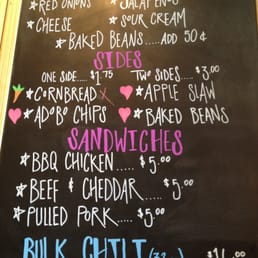 RED ONIONS JALAPENOS
CHEESE SOUR CREAM
BAKED BEANS.....ADD 50¢
SIDES
ONE SIDE.... $1.75 TWO SIDES.... $3.00
CORNBREAD APPLE SLAW
ADOBO CHIPS BAKED BEANS
SANDWICHES
BBQ CHICKEN..... $5.00
BEEF & CHEDDAR..... $5.00
PULLED PORK..... $5.00
BULK CHILI